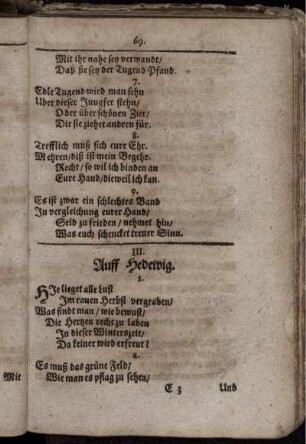 69.
Mit ihr nahe sey verwandt/
Daß sie sey der Tugend Pfand.
7.
Edle Tugend wird man sehn
Uber dieser Jungfer stehn/
Oder über schönen Zier/
Die sie ziehet andren für.
8.
Trefflich muß sich eure Ehr.
Mehren/ diß ist mein Begehr.
Recht/ so wil ich binden an
Eure Hand/ dieweil ich kan.
9.
Es ist zwar ein schlechtes Band
In vergleichung eurer Hand/
Seid zu frieden/ nehmet hin/
Was euch schencket treuer Sinn.
III.
Auff Hedewig.
1.
HIe lieget alle Lust
Im rauen Herbst vergraben/
Was findt man/ wie bewust/
Die Hertzen recht zu laben
In dieser Winterszeit/
Da keiner wird erfreut?
2.
Es muß das grüne Feld/
Wie man es pflag zu sehen/
E 3 Und
Mit